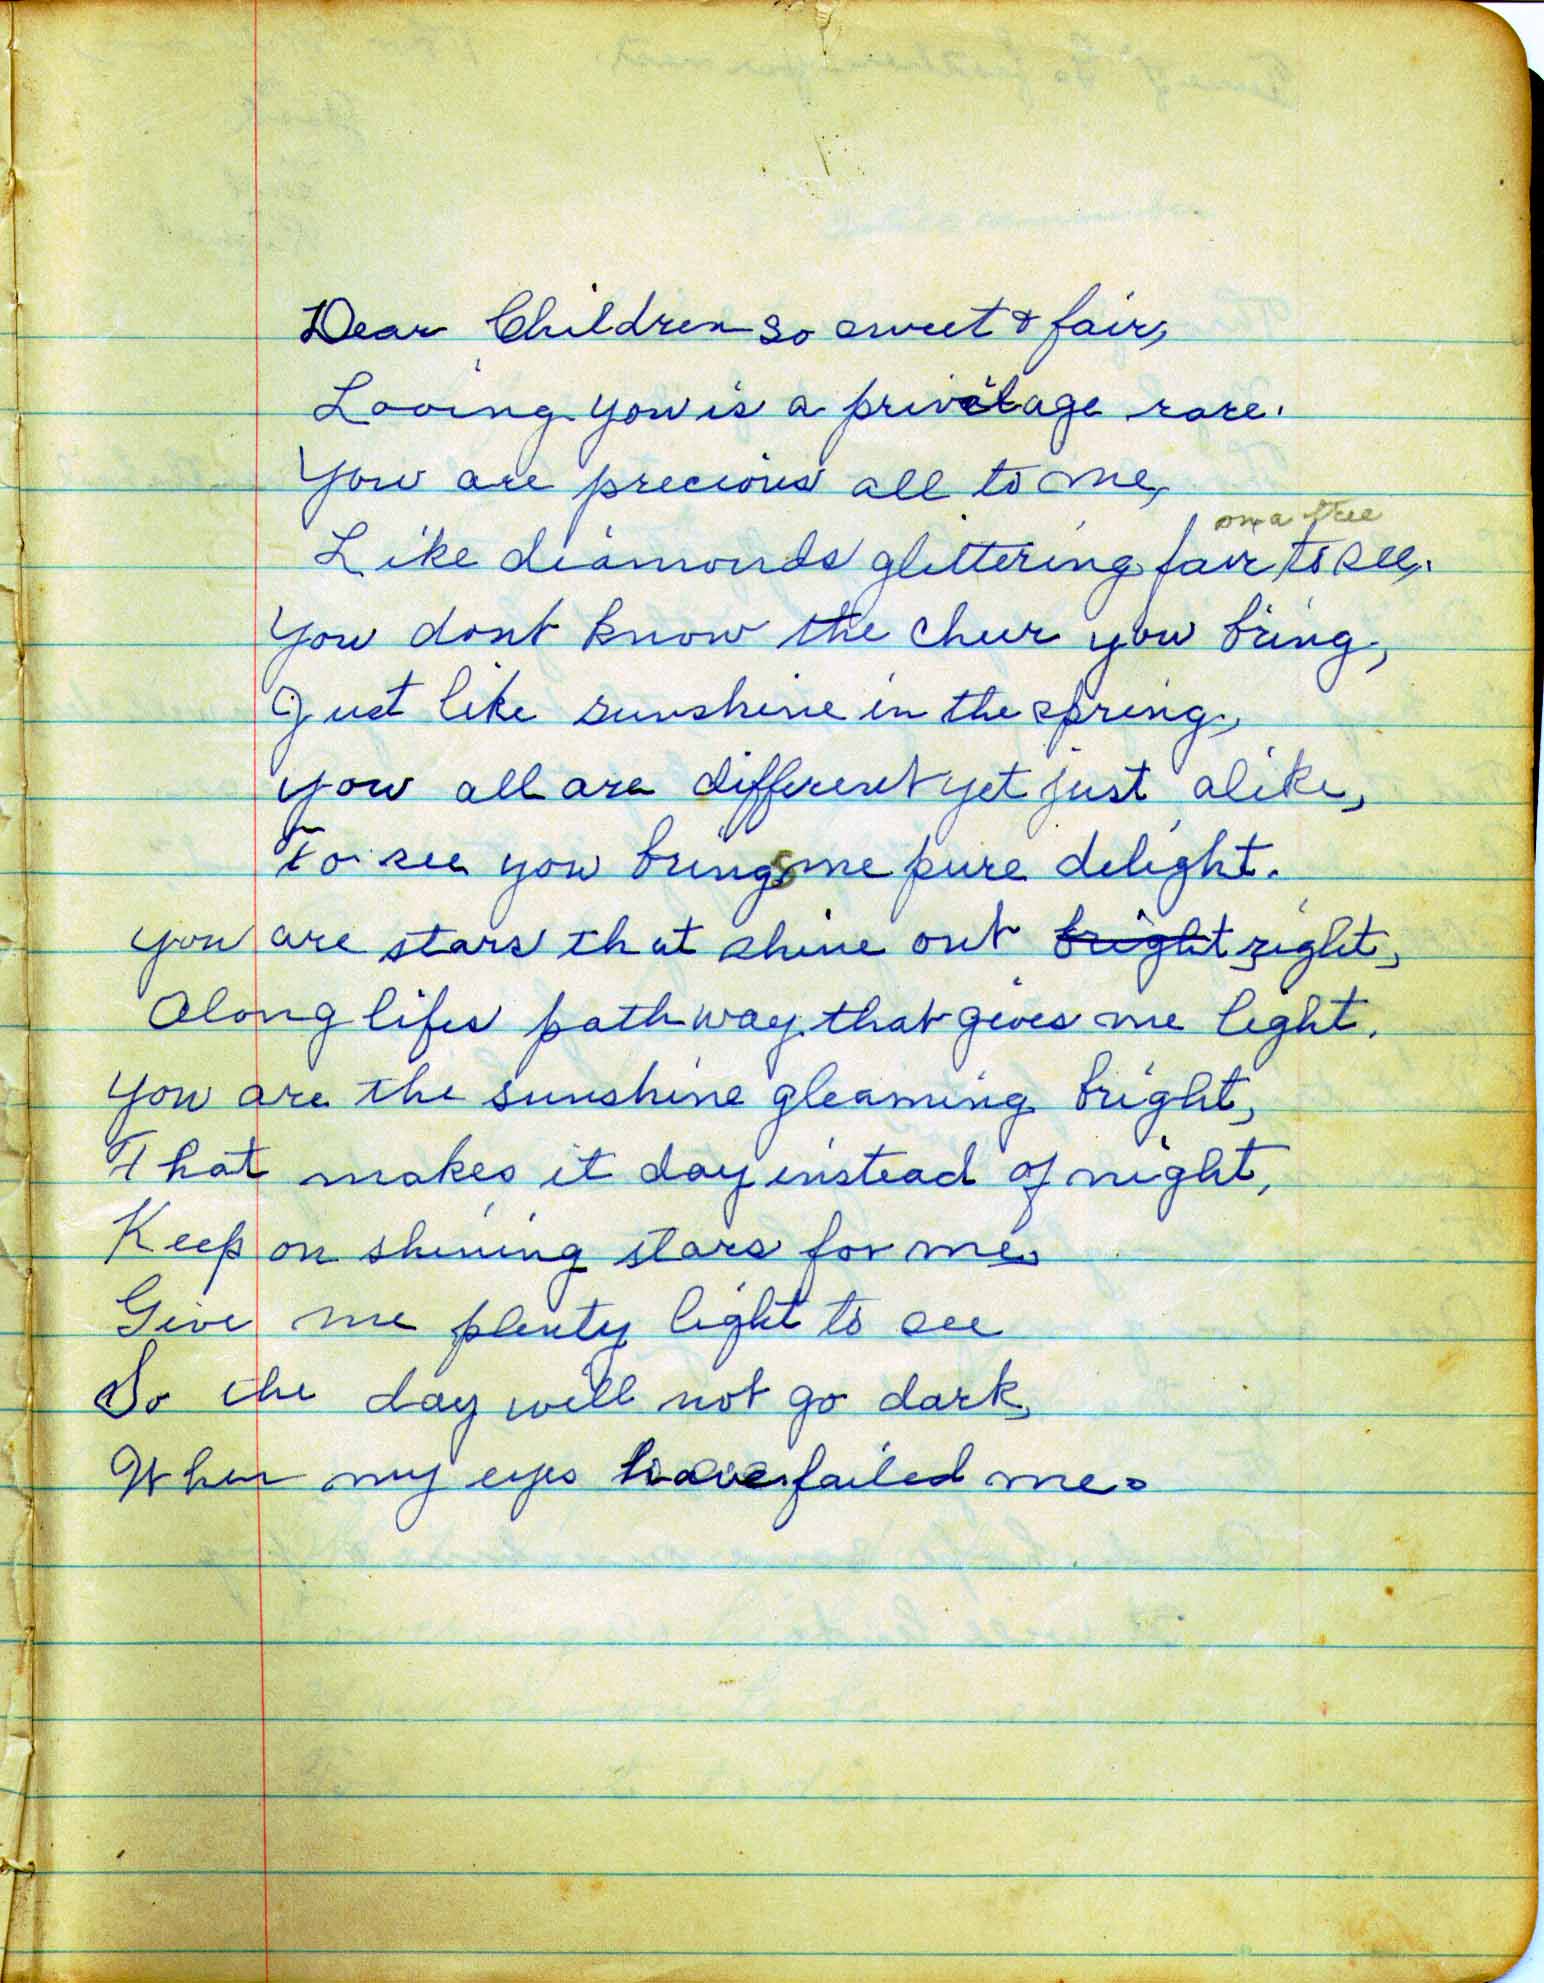 Dear Children so sweet & fair,
Loving you is a privilage rare.
You are precious all to me,
on a tree
Like diamonds glittering fair to see.
You dont know the cheer you bring,
Just like sunshine in the spring,
You all are different yet just alike,
To see you brings me pure delight.
You are stars that shine out bright right,
Along lifes pathway that gives me light.
You are the sunshine gleaming bright,
That makes it day instead of night,
Keep on shining stars for me,
Give me plenty light to see
So the day will not go dark,
When my eyes have failed me.